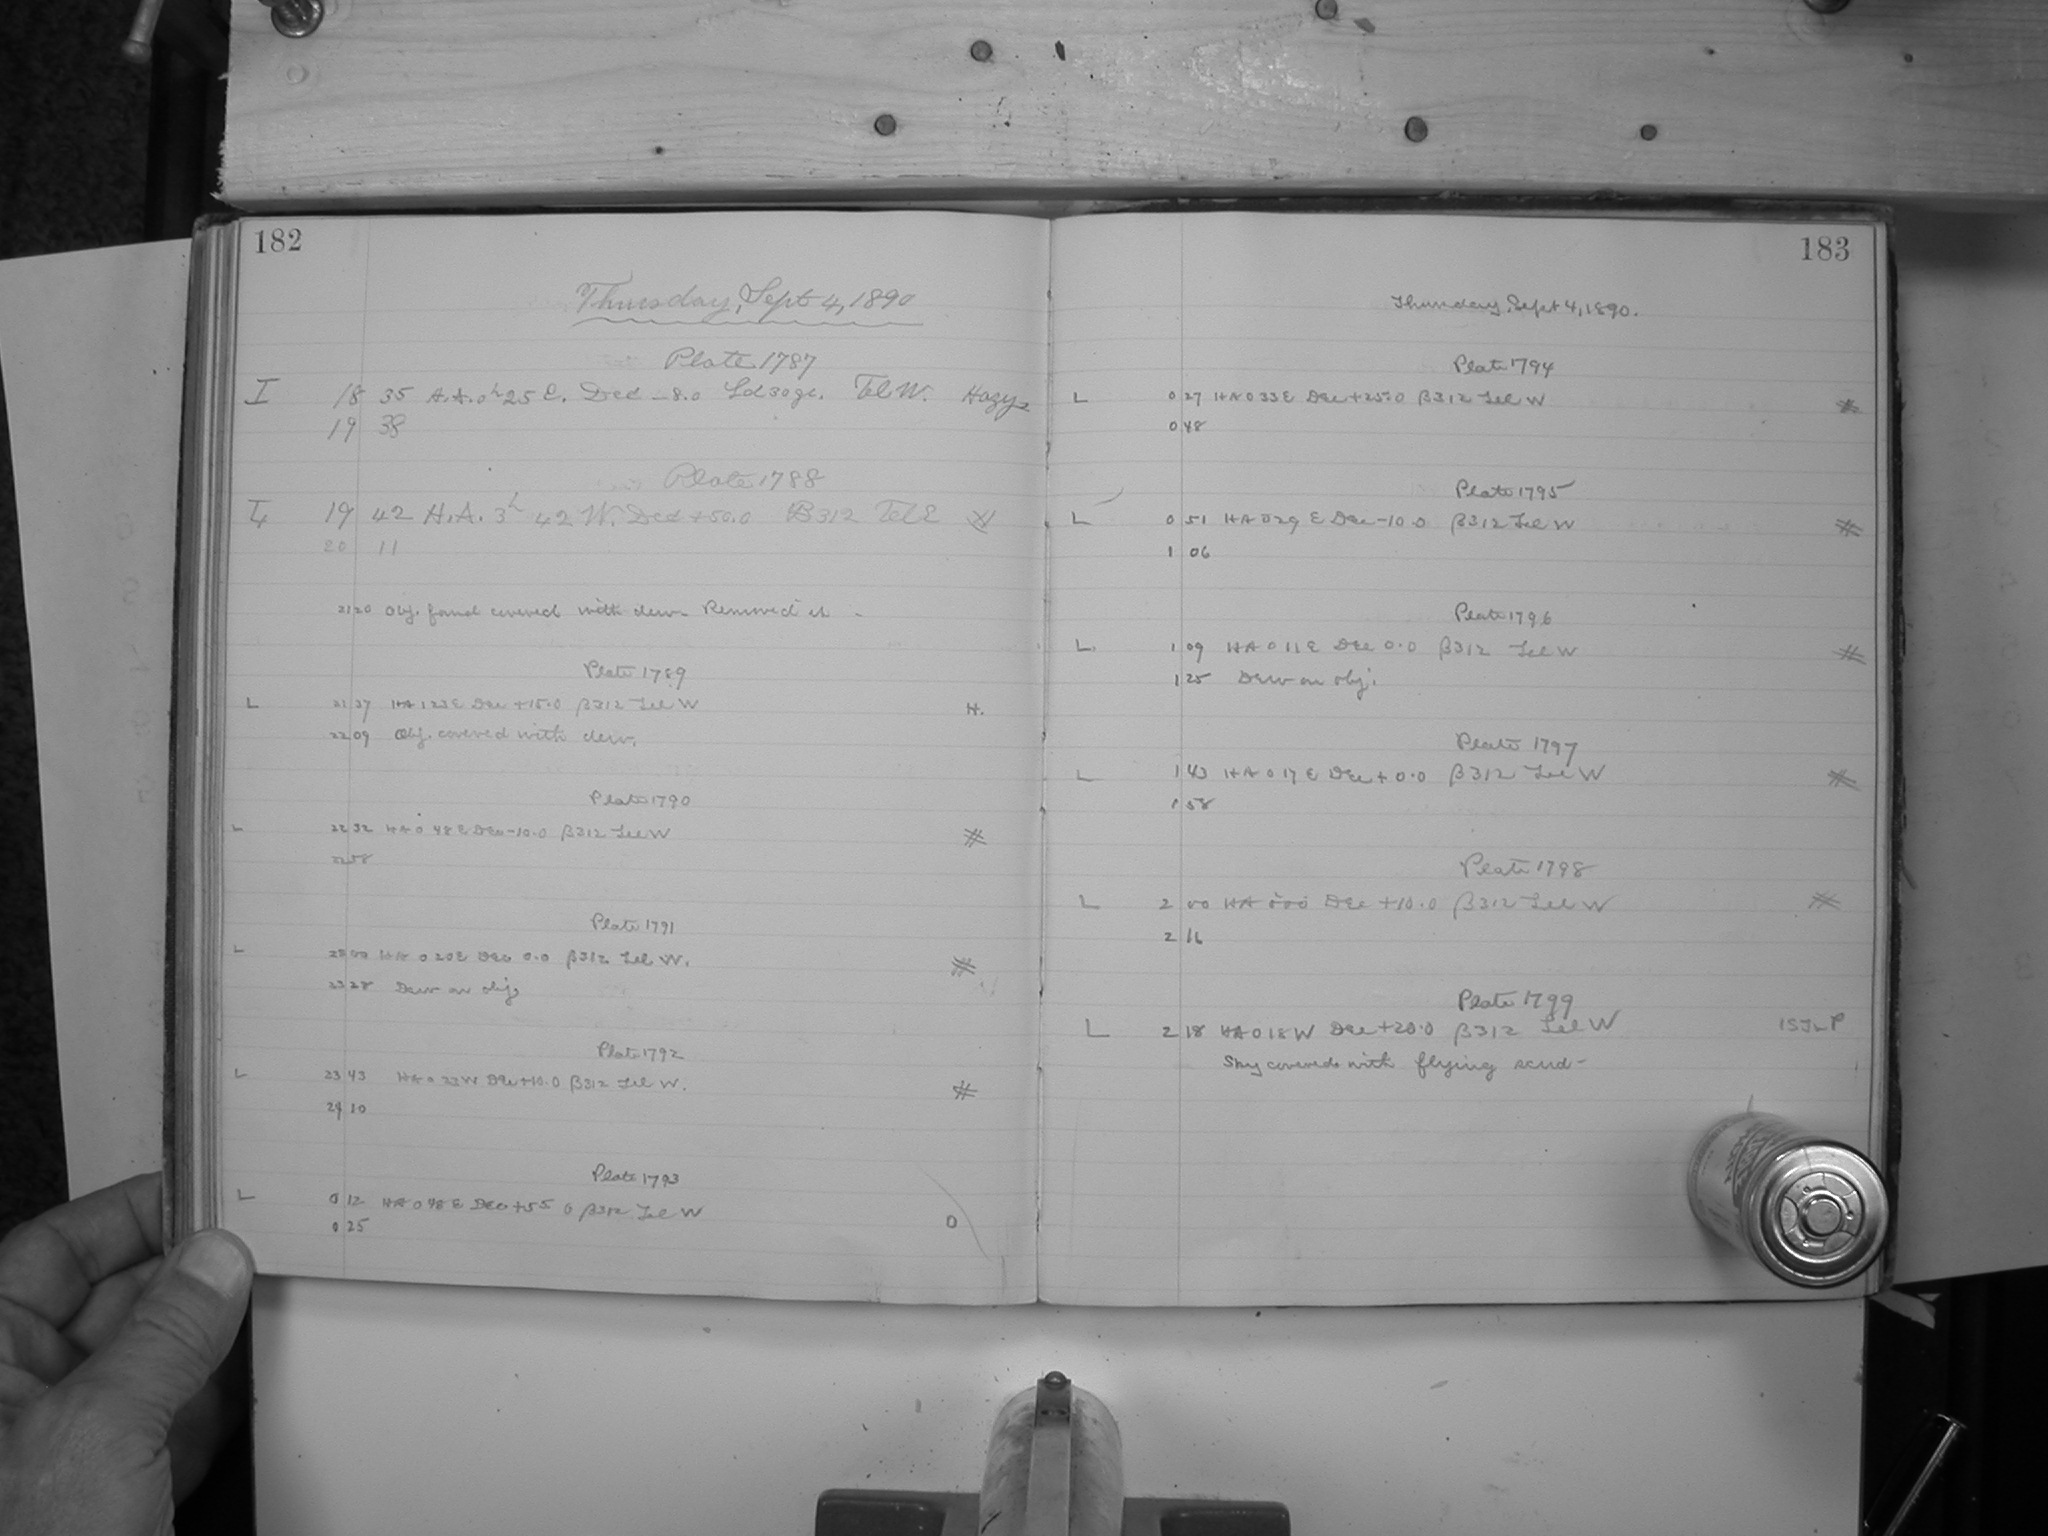 182
Thursday, Sept 4, 1890
Plate 1787
I 18 35 H.A. 0h 25 E. Dec -8.0 Tel W. Hazy
19 38
Plate 1788
19 42 H.A. 3h 42 W. Dec +50.0 B312 Tel E
20 11
21 20 Obj. found covered with dew. Removed it -
Plate 1789
L 21 37 HA 1 23 E Dec +15.0 B312 Tel W H.
22 09 Obj. covered with dew.
Plate 1790
L 22 32 HA 0 48 E Dec -10.0 B312 Tel W #
22 58
Plate 1791
L HA 0 20 E Dec 0.0 B312 Tel W. #
23 28 Dew on obj
Plate 1792
L 23 43 HA 0 23 W Dec +10.0 B312 Tel W. #
24 10
Plate 1793
L 0 12 HA 0 48 E Dec +55 0 B312 Tel W 0
0 25
183
Thursday, Sept 4, 1890.
Plate 1794
L 0 27 HA 0 33 E Dec +25.0 B312 Tel W #
0 48
Plate 1795
L 0 51 HA 0 29 E Dec -10.0 B312 Tel W #
1 06
Plate 1796
L. 1 09 HA 0 11 E Dec 0.0 B312 Tel W #
1 25 Dew on obj.
Plate 1797
L 1 43 HA 0 17 E Dec +0.0 B312 Tel W #
1 58
Plate 1798
L 2 00 HA 0 00 Dec +10.0 B312 Tel W #
2 16
Plate 1799
L 2 18 HA 0 18 W Dec +20.0 B312 Tel W
Sky covered with flying scud -